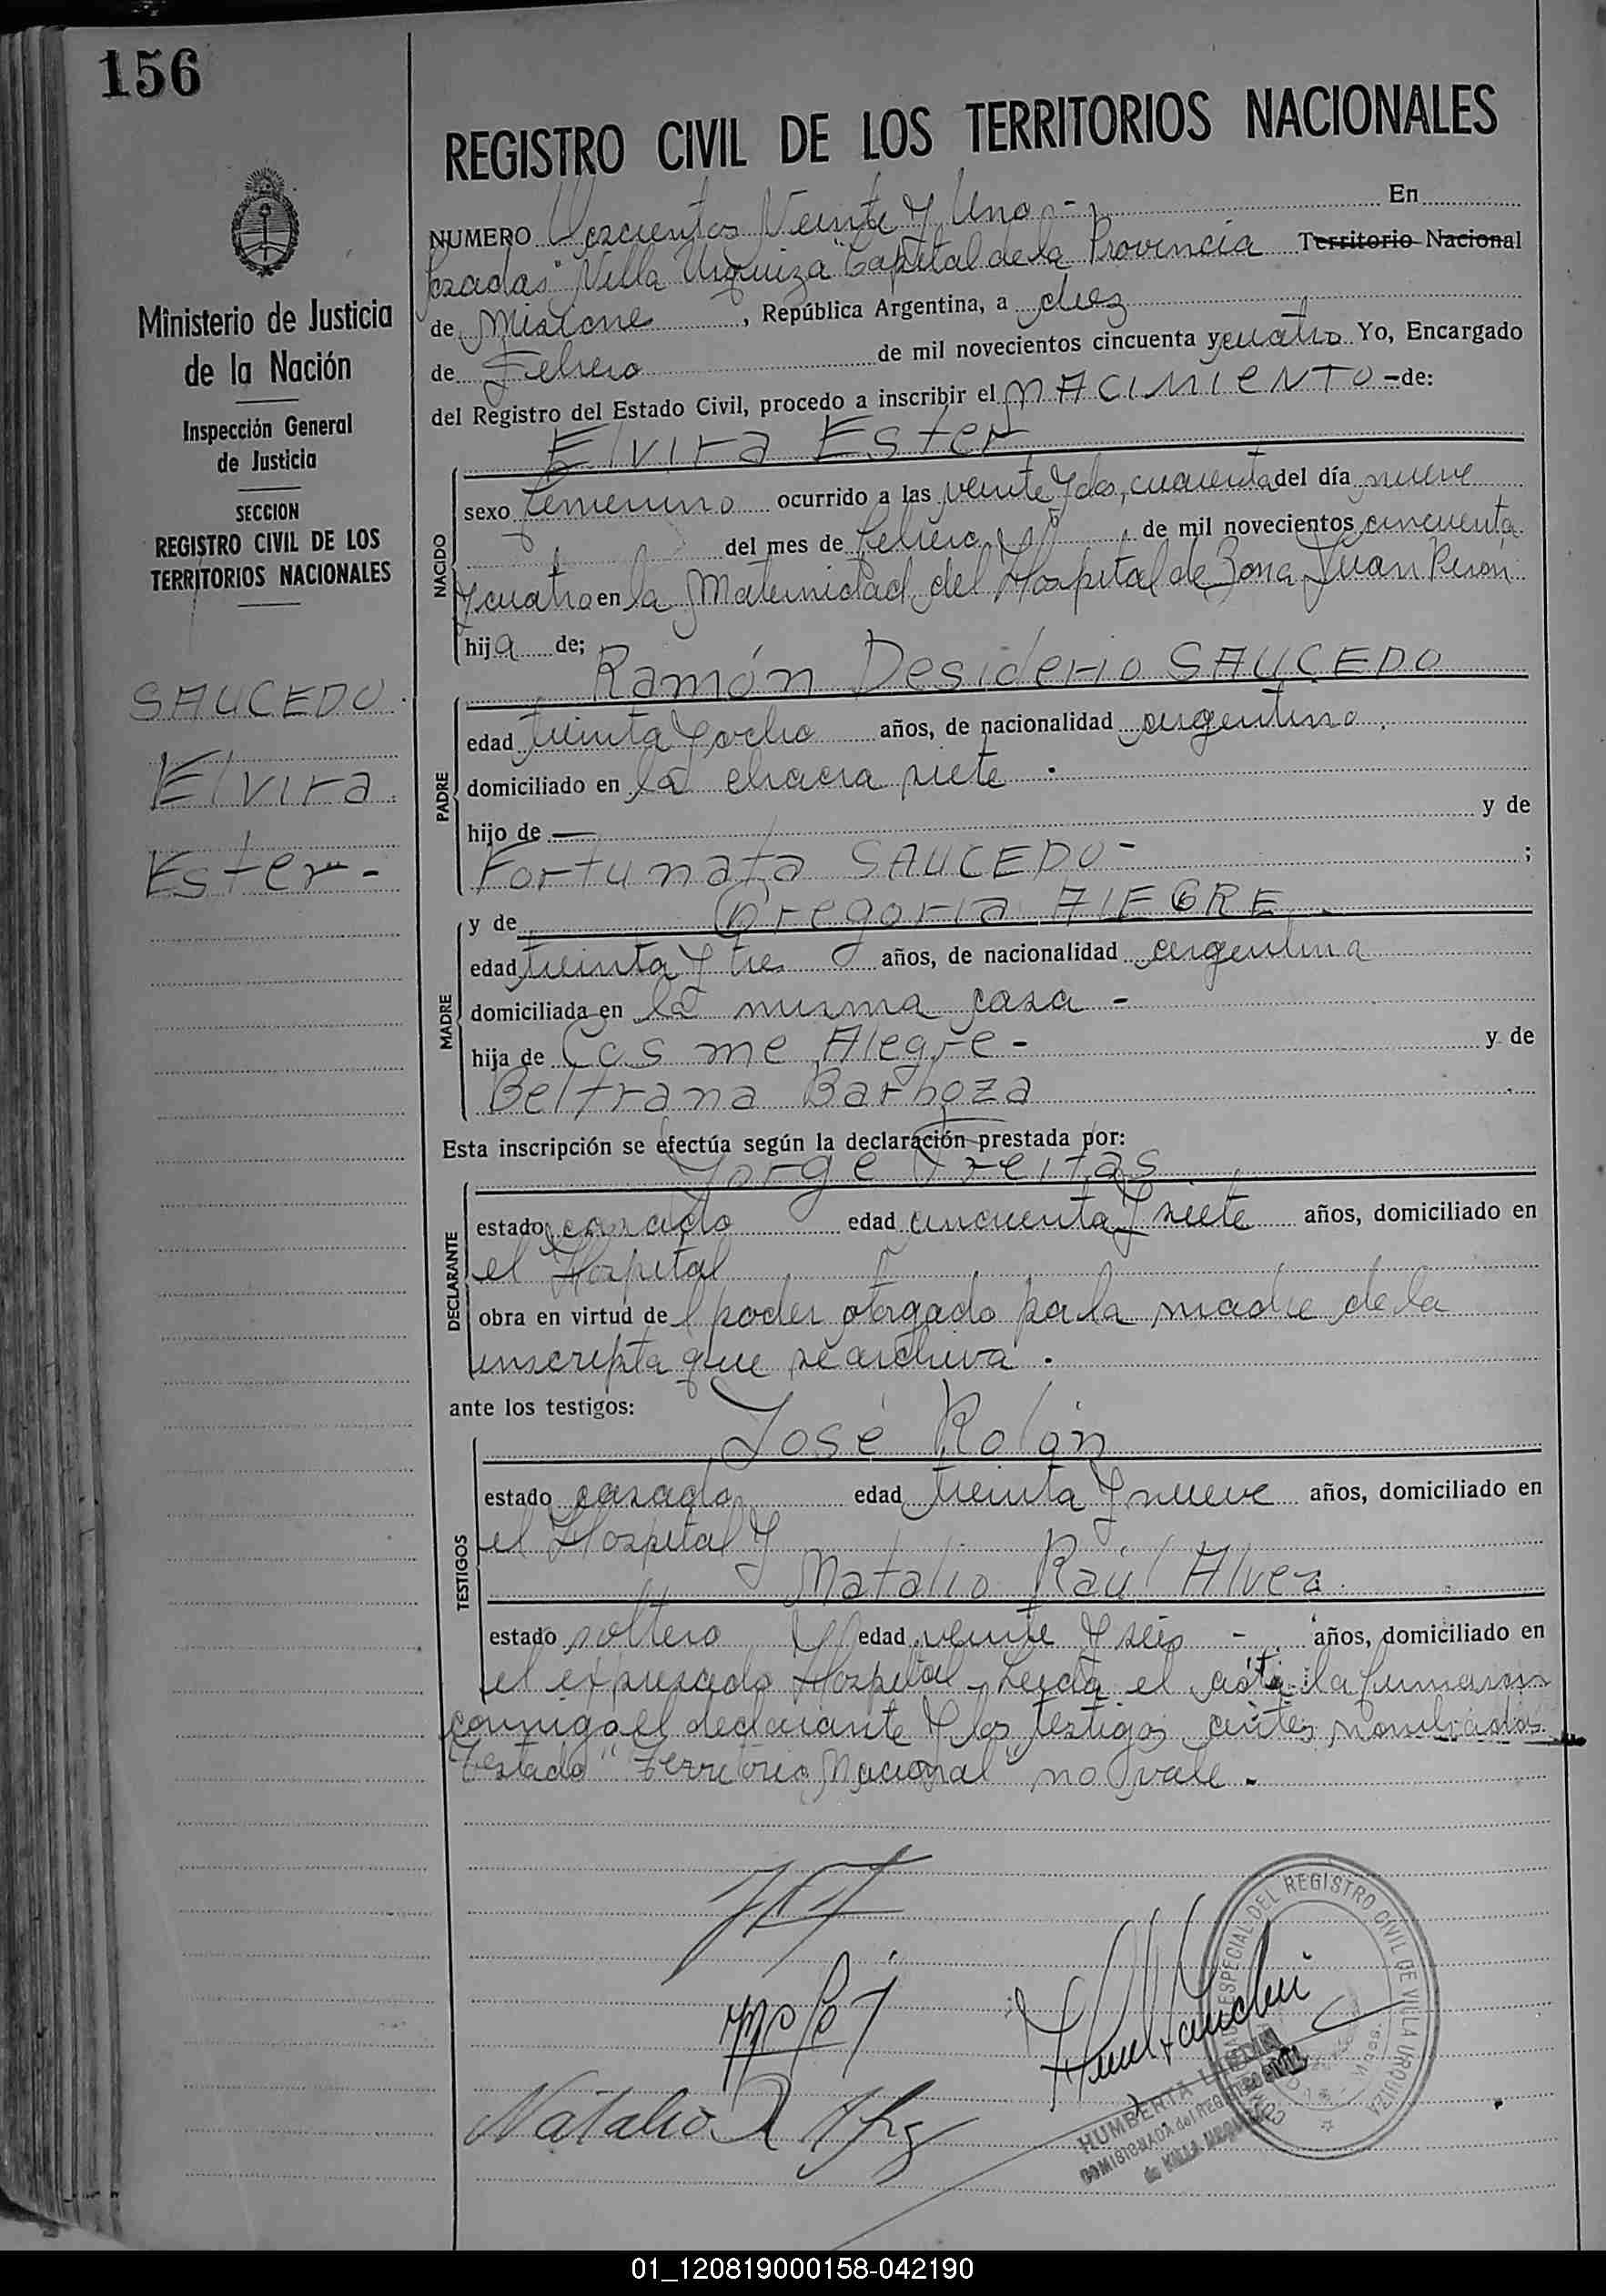 156
Ministerio de Justicia
de la Nación
Inspección General
de Justicia
SECCION
REGISTRO CIVIL DE LOS
TERRITORIOS NACIONALES
SAUCEDO.
Elvira
Ester-
REGISTRO CIVIL DE LOS TERRITORIOS NACIONALES
NUMERO Doscientos Veinte y Uno - En
Posadas "Villa Urquiza" Capital de la Provincia Territorio Nacional
de Misiones, República Argentina, a diez
de Febrero de mil novecientos cincuenta y cuatro Yo, Encargado
del Registro del Estado Civil, procedo a inscribir el NACIMIENTO -de:
Elvira Ester
NACIDO
sexo femenino ocurrido a las veinte y dos, cuarenta del día nueve
del mes de febrero de mil novecientos cincuenta
y cuatro en la Maternidad del Hospital de Zona Juan Perón
hija de;
Ramón Desiderio SAUCEDO
PADRE
edad treinta y ocho años, de nacionalidad argentino.
domiciliado en la chacra siete.
hijo de — y de
Fortunata SAUCEDO- ;
MADRE
y de Gregoria AlEGRE-
edad treinta y tres años, de nacionalidad argentina
domiciliada en la misma casa -
hija de Cosme Alegre- y de
Beltrana Barboza
Esta inscripción se efectúa según la declaración prestada por:
Jorge Freitas
DECLARANTE
estado casado edad cincuenta y siete años, domiciliado en
el Hospital
obra en virtud del poder otorgado por la madre de la
inscripta que se archiva.
ante los testigos:
José Rolón
TESTIGOS
estado casado edad treinta y nueve años, domiciliado en
el Hospital y
Natalio Raúl Alvez.
estado soltero edad veinte y seis - años, domiciliado en
el expresado Hospital - Leida el acta la firmaron
conmigo el declarante y los testigos antes nombrados.
Testado "Territorio Nacional" no vale.-
Natalio R
ESPECIAL DEL REGISTRO CIVIL DE VILLA URQUIZA
HUMBERTA
COMISIONADA del REGISTRO
de VILLA URQUIZA
01_120819000158-042190